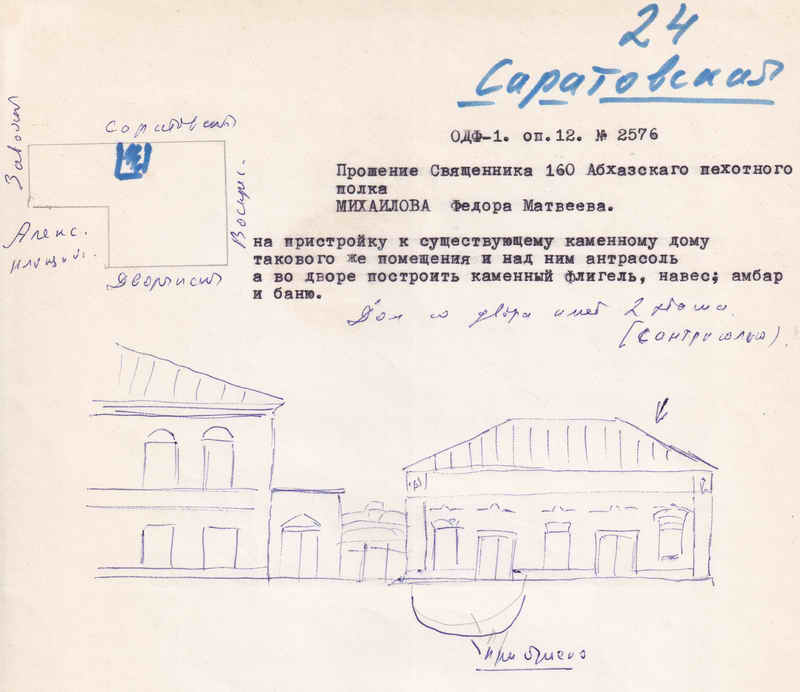 24
Саратовская
ОДФ-1. оп.12. № 2576
Прошение Священника 160 Абхазскаго пехотного
полка
МИХАИЛОВА Федора Матвеева.
на пристройку к существующему каменному дому
такового же помещения и над ним антрасоль
а во дворе построить каменный флигель, навес; амбар
и баню.
Дом со двора имеет 2 этажа
(с антресолью).
Саратовская
Воскрес.
Алекс.
площадь.
Дворянская